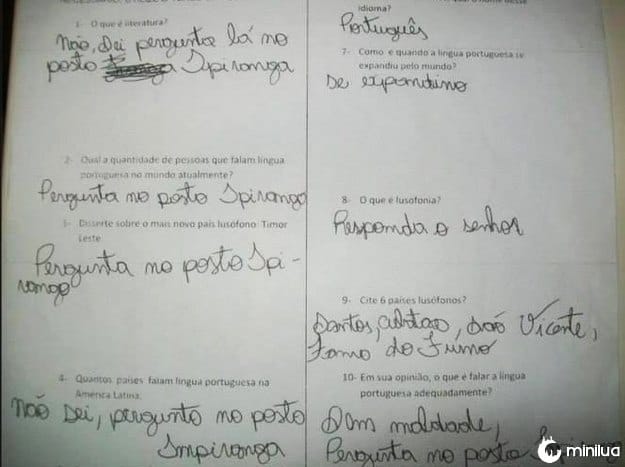 1- O que é literatura?
Não, Sei pergunta lá no
posto Ipiranga
2- Qual a quantidade de pessoas que falam língua
portuguesa no mundo atualmente?
Pergunta no posto Ipiranga
3- Disserte sobre o mais novo país lusófono: Timor
Leste
Pergunta no posto Ipi-
ranga
4- Quantos países falam língua portuguesa na
América Latina.
não Sei, pergunto no posto
Impiranga
idioma?
Português
7- Como e quando a língua portuguesa se
expandiu pelo mundo?
se expondino
8- O que é lusofonia?
Responda o senhor
9- Cite 6 países lusófonos?
Santos, São Vicente,
do
10- Em sua opinião, o que é falar a língua
portuguesa adequadamente?
Sem maldade,
Pergunta no posto Ipiranga
minilua